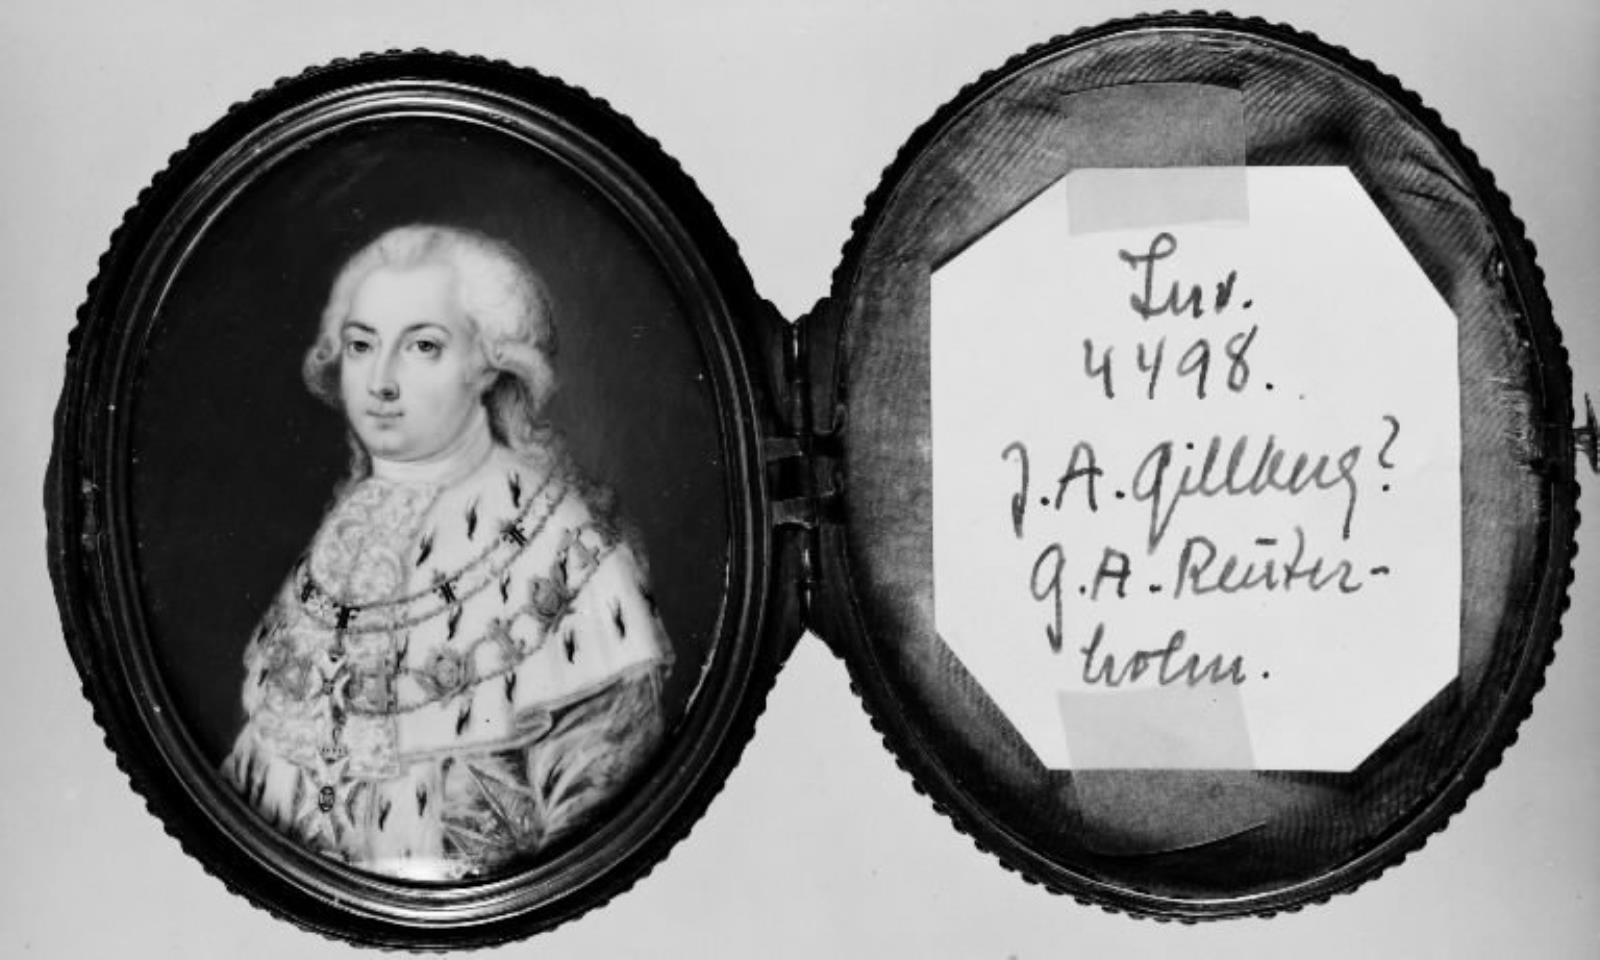 Inv.
4498.
J.A. Gillberg?
G.A. Reuter-
holm.